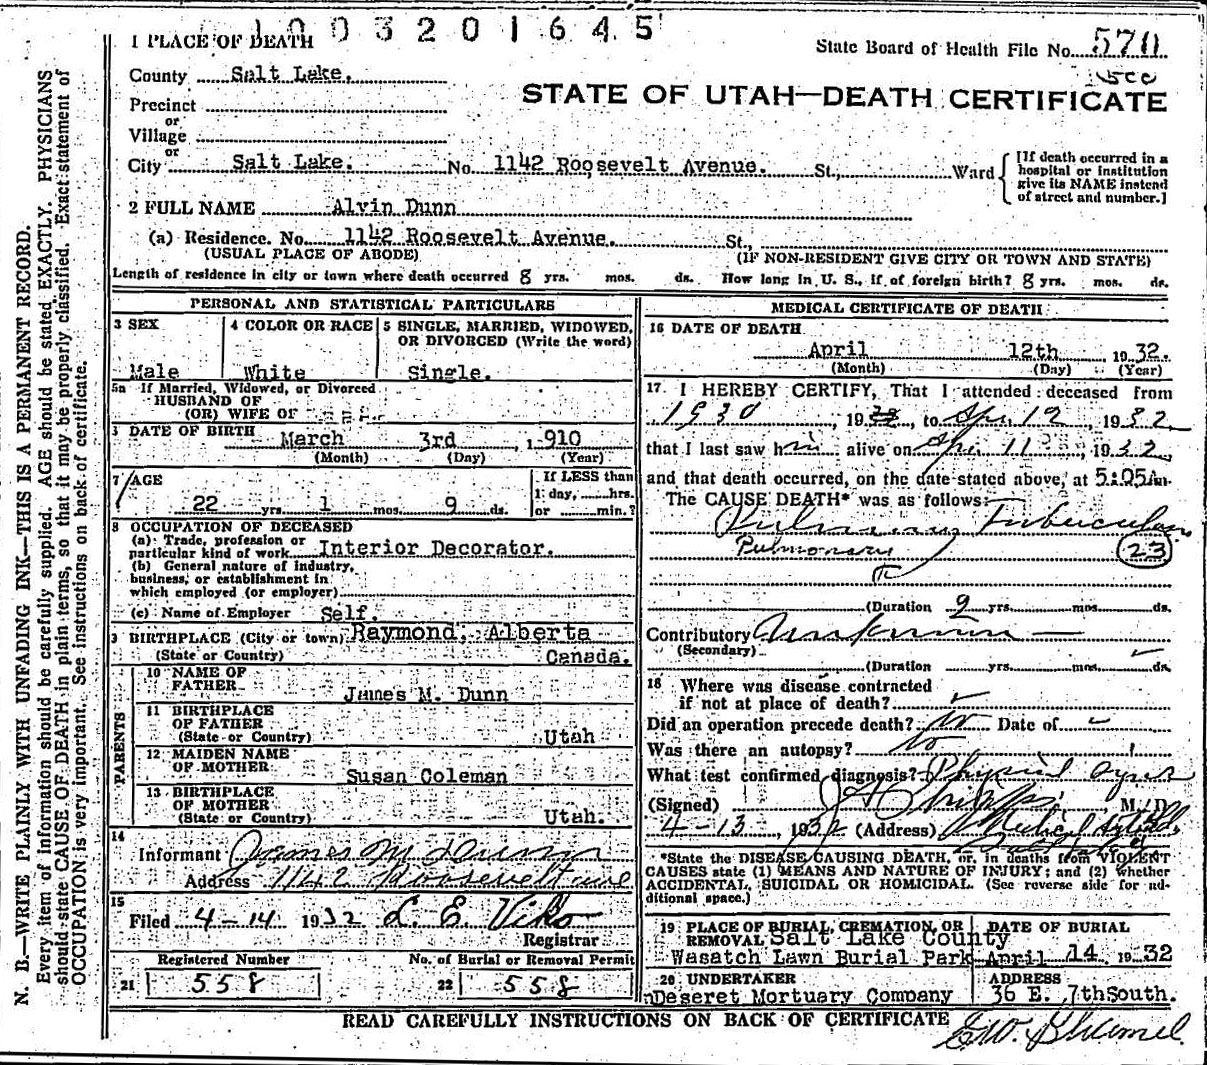 1003201645
1 PLACE OF DEATH
State Board of Health File No. 570
County Salt Lake.
STATE OF UTAH—DEATH CERTIFICATE
Precinct
or
Village
or
City Salt Lake. No. 1142 Roosevelt Avenue. St., Ward
[If death occurred in a
hospital or institution
give its NAME instead
of street and number.]
2 FULL NAME Alvin Dunn
(a) Residence. No. 1142 Roosevelt Avenue. St.,
(USUAL PLACE OF ABODE) (IF NON-RESIDENT GIVE CITY OR TOWN AND STATE)
Length of residence in city or town where death occurred 8 yrs. mos. ds. How long in U. S., if of foreign birth? 8 yrs. mos. ds.
N. B.—WRITE PLAINLY WITH UNFADING INK—THIS IS A PERMANENT RECORD.
Every item of information should be carefully supplied. AGE should be stated EXACTLY. PHYSICIANS
should state CAUSE OF DEATH in plain terms, so that it may be properly classified. Exact statement of
OCCUPATION is very important. See instructions on back of certificate.
PERSONAL AND STATISTICAL PARTICULARS
3 SEX
4 COLOR OR RACE
5 SINGLE, MARRIED, WIDOWED,
OR DIVORCED (Write the word)
Male White Single.
5a If Married, Widowed, or Divorced
HUSBAND OF
(OR) WIFE OF
6 DATE OF BIRTH March 3rd 1910
(Month) (Day) (Year)
7 AGE
If LESS than
1 day, hrs.
or min.?
22 yrs. 1 mos. 9 ds.
8 OCCUPATION OF DECEASED
(a) Trade, profession or
particular kind of work Interior Decorator.
(b) General nature of industry,
business, or establishment in
which employed (or employer)
(c) Name of Employer Self.
9 BIRTHPLACE (City or town) Raymond, Alberta
(State or Country) Canada.
PARENTS
10 NAME OF
FATHER James M. Dunn
11 BIRTHPLACE
OF FATHER
(State or Country) Utah
12 MAIDEN NAME
OF MOTHER Susan Coleman
13 BIRTHPLACE
OF MOTHER
(State or Country) Utah.
14
Informant James M Dunn
Address 1142 Roosevelt ave
15
Filed 4-14 1932 L. E. Viko
Registrar
Registered Number No. of Burial or Removal Permit
21 558 22 558
MEDICAL CERTIFICATE OF DEATH
16 DATE OF DEATH
April 12th 1932.
(Month) (Day) (Year)
17 I HEREBY CERTIFY, That I attended deceased from
1930, 19, to Apr 12, 1932
that I last saw him alive on Apr. 11, 1932
and that death occurred, on the date stated above, at 5:05A m.
The CAUSE DEATH* was as follows:
Pulmonary Tuberculosis
Pulmonary 23
(Duration 2 yrs. mos. ds.
Contributory Unknown
(Secondary)
(Duration yrs. mos. ds.
18 Where was disease contracted
if not at place of death?
Did an operation precede death? No Date of
Was there an autopsy? No
What test confirmed diagnosis? Physical
(Signed) M. D.
4-13, 1932 (Address) Medical Arts Bldg.
*State the DISEASE CAUSING DEATH, or, in deaths from VIOLENT
CAUSES state (1) MEANS AND NATURE OF INJURY; and (2) whether
ACCIDENTAL, SUICIDAL OR HOMICIDAL. (See reverse side for ad-
ditional space.)
19 PLACE OF BURIAL, CREMATION, OR
REMOVAL Salt Lake County
Wasatch Lawn Burial Park
DATE OF BURIAL
April 14 1932
20 UNDERTAKER
Deseret Mortuary Company
ADDRESS
36 E. 7th South.
READ CAREFULLY INSTRUCTIONS ON BACK OF CERTIFICATE